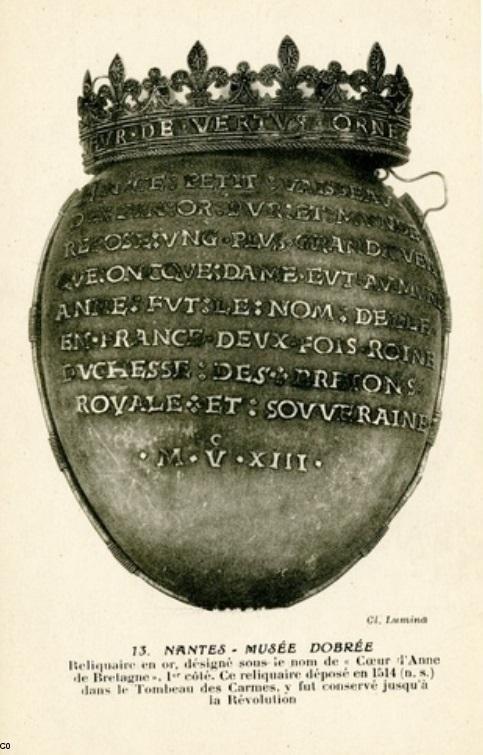 EUR·DE VERTVS ORNE
EN CE : PETIT : VAISSEAU
DE FIN OR : PVR : ET MVNDE
REPOSE : VNG · PLVS · GRAND CVEVR
QVE : ONCQVE : DAME · EVT AV MVNDE
ANNE : FVT : LE : NOM : DELLE
EN · FRANCE · DEVX · FOIS · ROINE
DVCHESSE : DES : BRETONS
ROYALE : ET : SOVVERAINE
C
· M · V · XIII ·
Cl. Lumina
13. NANTES - MUSÉE DOBRÉE
Reliquaire en or, désigné sous le nom de « Cœur d'Anne
de Bretagne », 1er côté. Ce reliquaire déposé en 1514 (n. s.)
dans le Tombeau des Carmes, y fut conservé jusqu'à
la Révolution
co